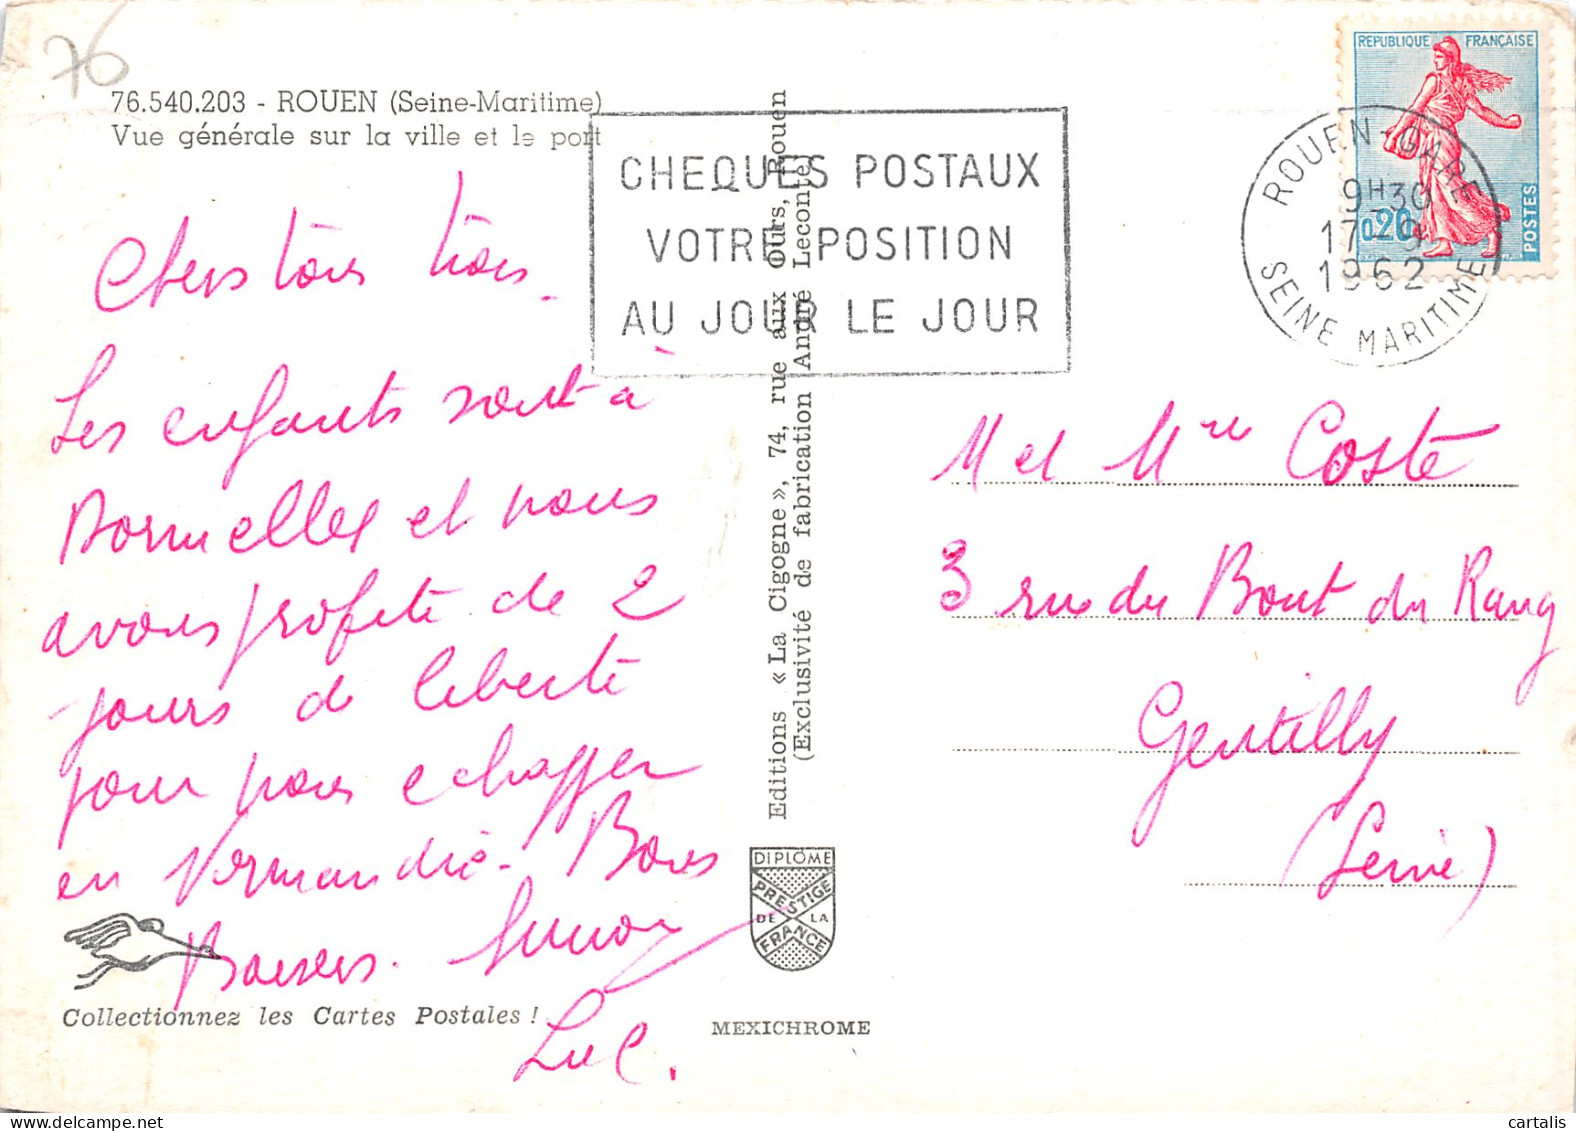 76
76.540.203 - ROUEN (Seine-Maritime)
Vue générale sur la ville et le port
Chers tous trois.
Les enfants sont à
Bormelles et nous
avons profité de 2
jours de liberté
pour nous echapper
en Normandie. Bons
Baisers.
Luc.
Collectionnez les Cartes Postales !
Editions « La Cigogne », 74, rue aux Ours, Rouen
(Exclusivité de fabrication André Leconte)
DIPLÔME
PRESTIGE
DE LA
FRANCE
MEXICHROME
CHEQUES POSTAUX
VOTRE POSITION
AU JOUR LE JOUR
REPUBLIQUE FRANÇAISE
0,20
POSTES
ROUEN-GARE
9H30
17-9
1962
SEINE MARITIME
M et Mme Coste
3 rue du Bout du Rang
Gentilly
(Seine)
cartalis